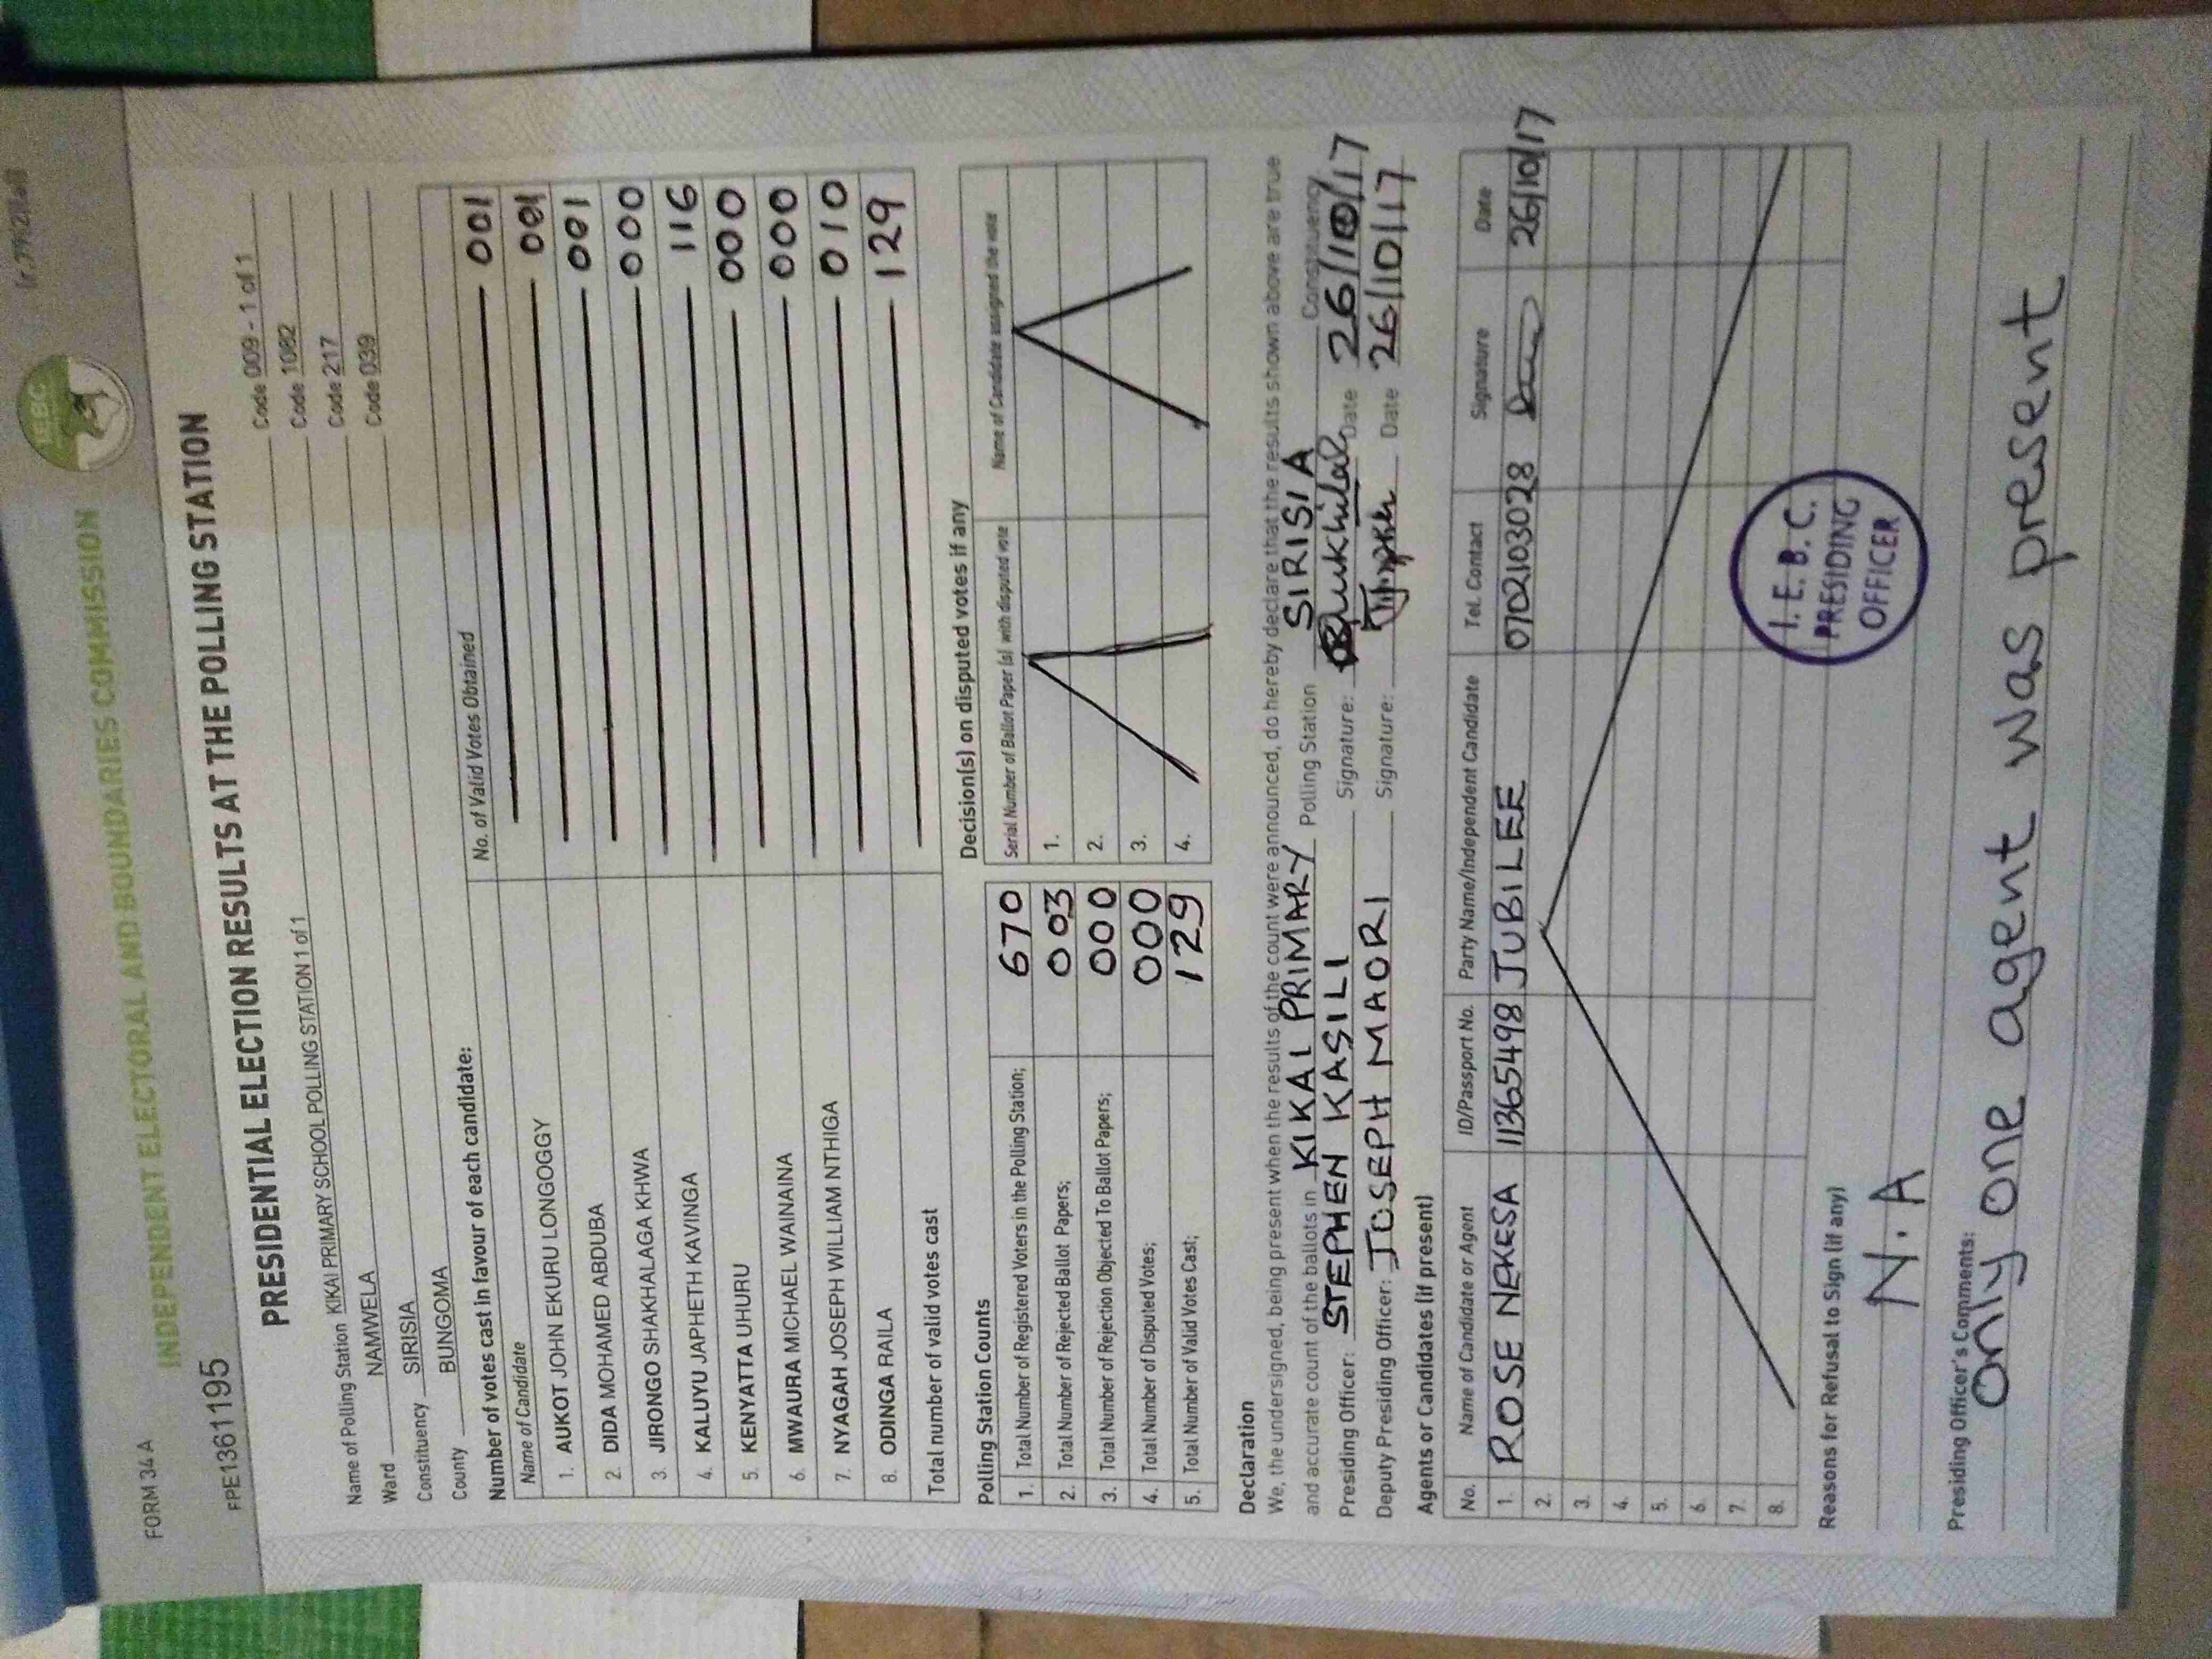 FORM 34A
INDEPENDENT ELECTORAL AND BOUNDARIES COMMISSION
IEBC
FPE1361195
PRESIDENTIAL ELECTION RESULTS AT THE POLLING STATION
Name of Polling Station KIKAI PRIMARY SCHOOL POLLING STATION 1 of 1 Code 009 - 1 of 1
Ward NAMWELA Code 1082
Constituency SIRISIA Code 217
County BUNGOMA Code 039
Number of votes cast in favour of each candidate:
Name of Candidate No. of Valid Votes Obtained
1. AUKOT JOHN EKURU LONGOGGY 001
2. DIDA MOHAMED ABDUBA 001
3. JIRONGO SHAKHALAGA KHWA 001
4. KALUYU JAPHETH KAVINGA 000
5. KENYATTA UHURU 116
6. MWAURA MICHAEL WAINAINA 000
7. NYAGAH JOSEPH WILLIAM NTHIGA 000
8. ODINGA RAILA 010
Total number of valid votes cast 129
Polling Station Counts
1. Total Number of Registered Voters in the Polling Station; 670
2. Total Number of Rejected Ballot Papers; 003
3. Total Number of Rejection Objected To Ballot Papers; 000
4. Total Number of Disputed Votes; 000
5. Total Number of Valid Votes Cast; 129
Decision(s) on disputed votes if any
Serial Number of Ballot Paper (s) with disputed vote Name of Candidate assigned the vote
1.
2.
3.
4.
Declaration
We, the undersigned, being present when the results of the count were announced, do hereby declare that the results shown above are true
and accurate count of the ballots in KIKAI PRIMARY Polling Station SIRISIA Constituency
Presiding Officer: STEPHEN KASILI Signature: Date 26/10/17
Deputy Presiding Officer: JOSEPH MAORI Signature: Date 26/10/17
Agents or Candidates (if present)
No. Name of Candidate or Agent ID/Passport No. Party Name/Independent Candidate Tel. Contact Signature Date
1. ROSE NEKESA 11365498 JUBILEE 0702103028 26/10/17
2.
3.
4.
5.
6.
7.
8.
I.E.B.C.
PRESIDING
OFFICER
Reasons for Refusal to Sign (if any)
N.A
Presiding Officer's Comments:
Only one agent was present